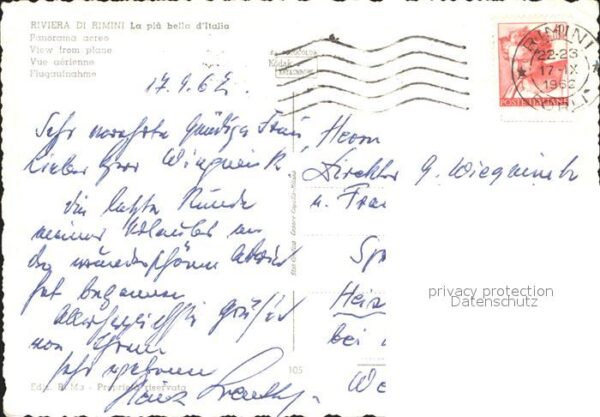 RIVIERA DI RIMINI La più bella d'Italia
Panorama aereo
View from plane
Vue aérienne
Flugaufnahme
17.9.62.
Sehr verehrte gnädige Frau,
lieber Herr Wiegmink
die letzte Stunde
meines Urlaubes an
der wunderschönen
hat begonnen
Allerherzlichste Grüße
von Ihrem
sehr ergebenen
Heinz
Ediz. - Proprietà riservata
105
Kodak
RIMINI
22-23
17-IX
1962
POSTE ITALIANE
Herrn
Direktor G. Wiegmink
u. Frau
Sp
Hei
bei
We
privacy protection
Datenschutz